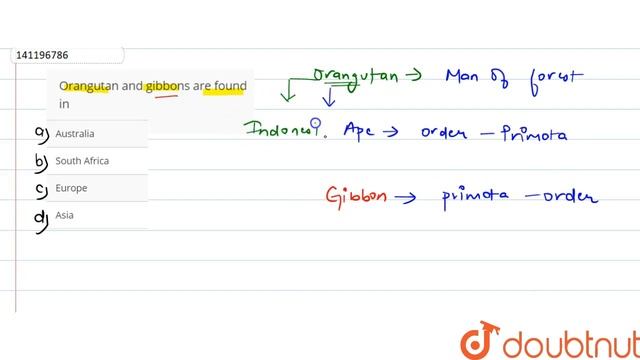 141196786
Orangutan and gibbons are found
in
a) Australia
b) South Africa
c) Europe
d) Asia
Orangutan → Man of forest
Indonesi. Ape → order - Primata
Gibbon → primata - order
doubtnut